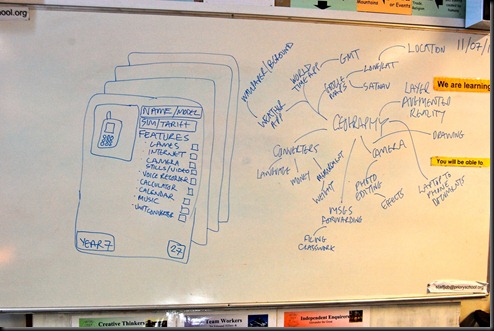 school.org
Mountains
or Events
NAME/MODEL
SIM/TARIFF
FEATURES
· GAMES
· INTERNET
· CAMERA
STILLS/VIDEO
· VOICE RECORDER
· CALCULATOR
· CALENDAR
· MUSIC
· UNIT CONVERTER
YEAR 7
27
WEATHER APP
WORLD TIME APP
GMT
GOOGLE MAPS
LONG/LAT
SATNAV
LOCATION
11/07/
GEOGRAPHY
LAYER
AUGMENTED
REALITY
DRAWING
CAMERA
PHOTO
EDITING
EFFECTS
LAPTOP TO
PHONE
DOCUMENTS
CONVERTERS
LANGUAGE
MONEY
WEIGHT
MSGS
FORWARDING
FILING
CLASSWORK
We are learning
You will be able to
@prioryschool.org
Creative Thinkers
Team Workers
Independent Enquirers